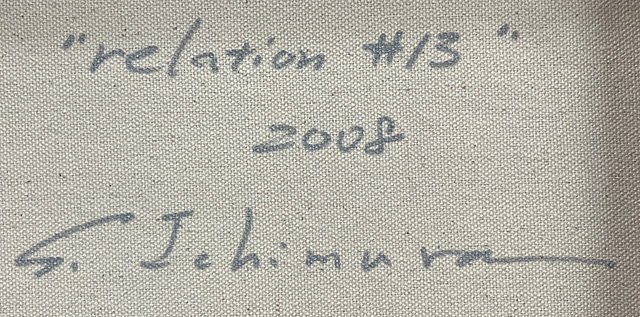 "relation #13"
2008
S. Ichimura